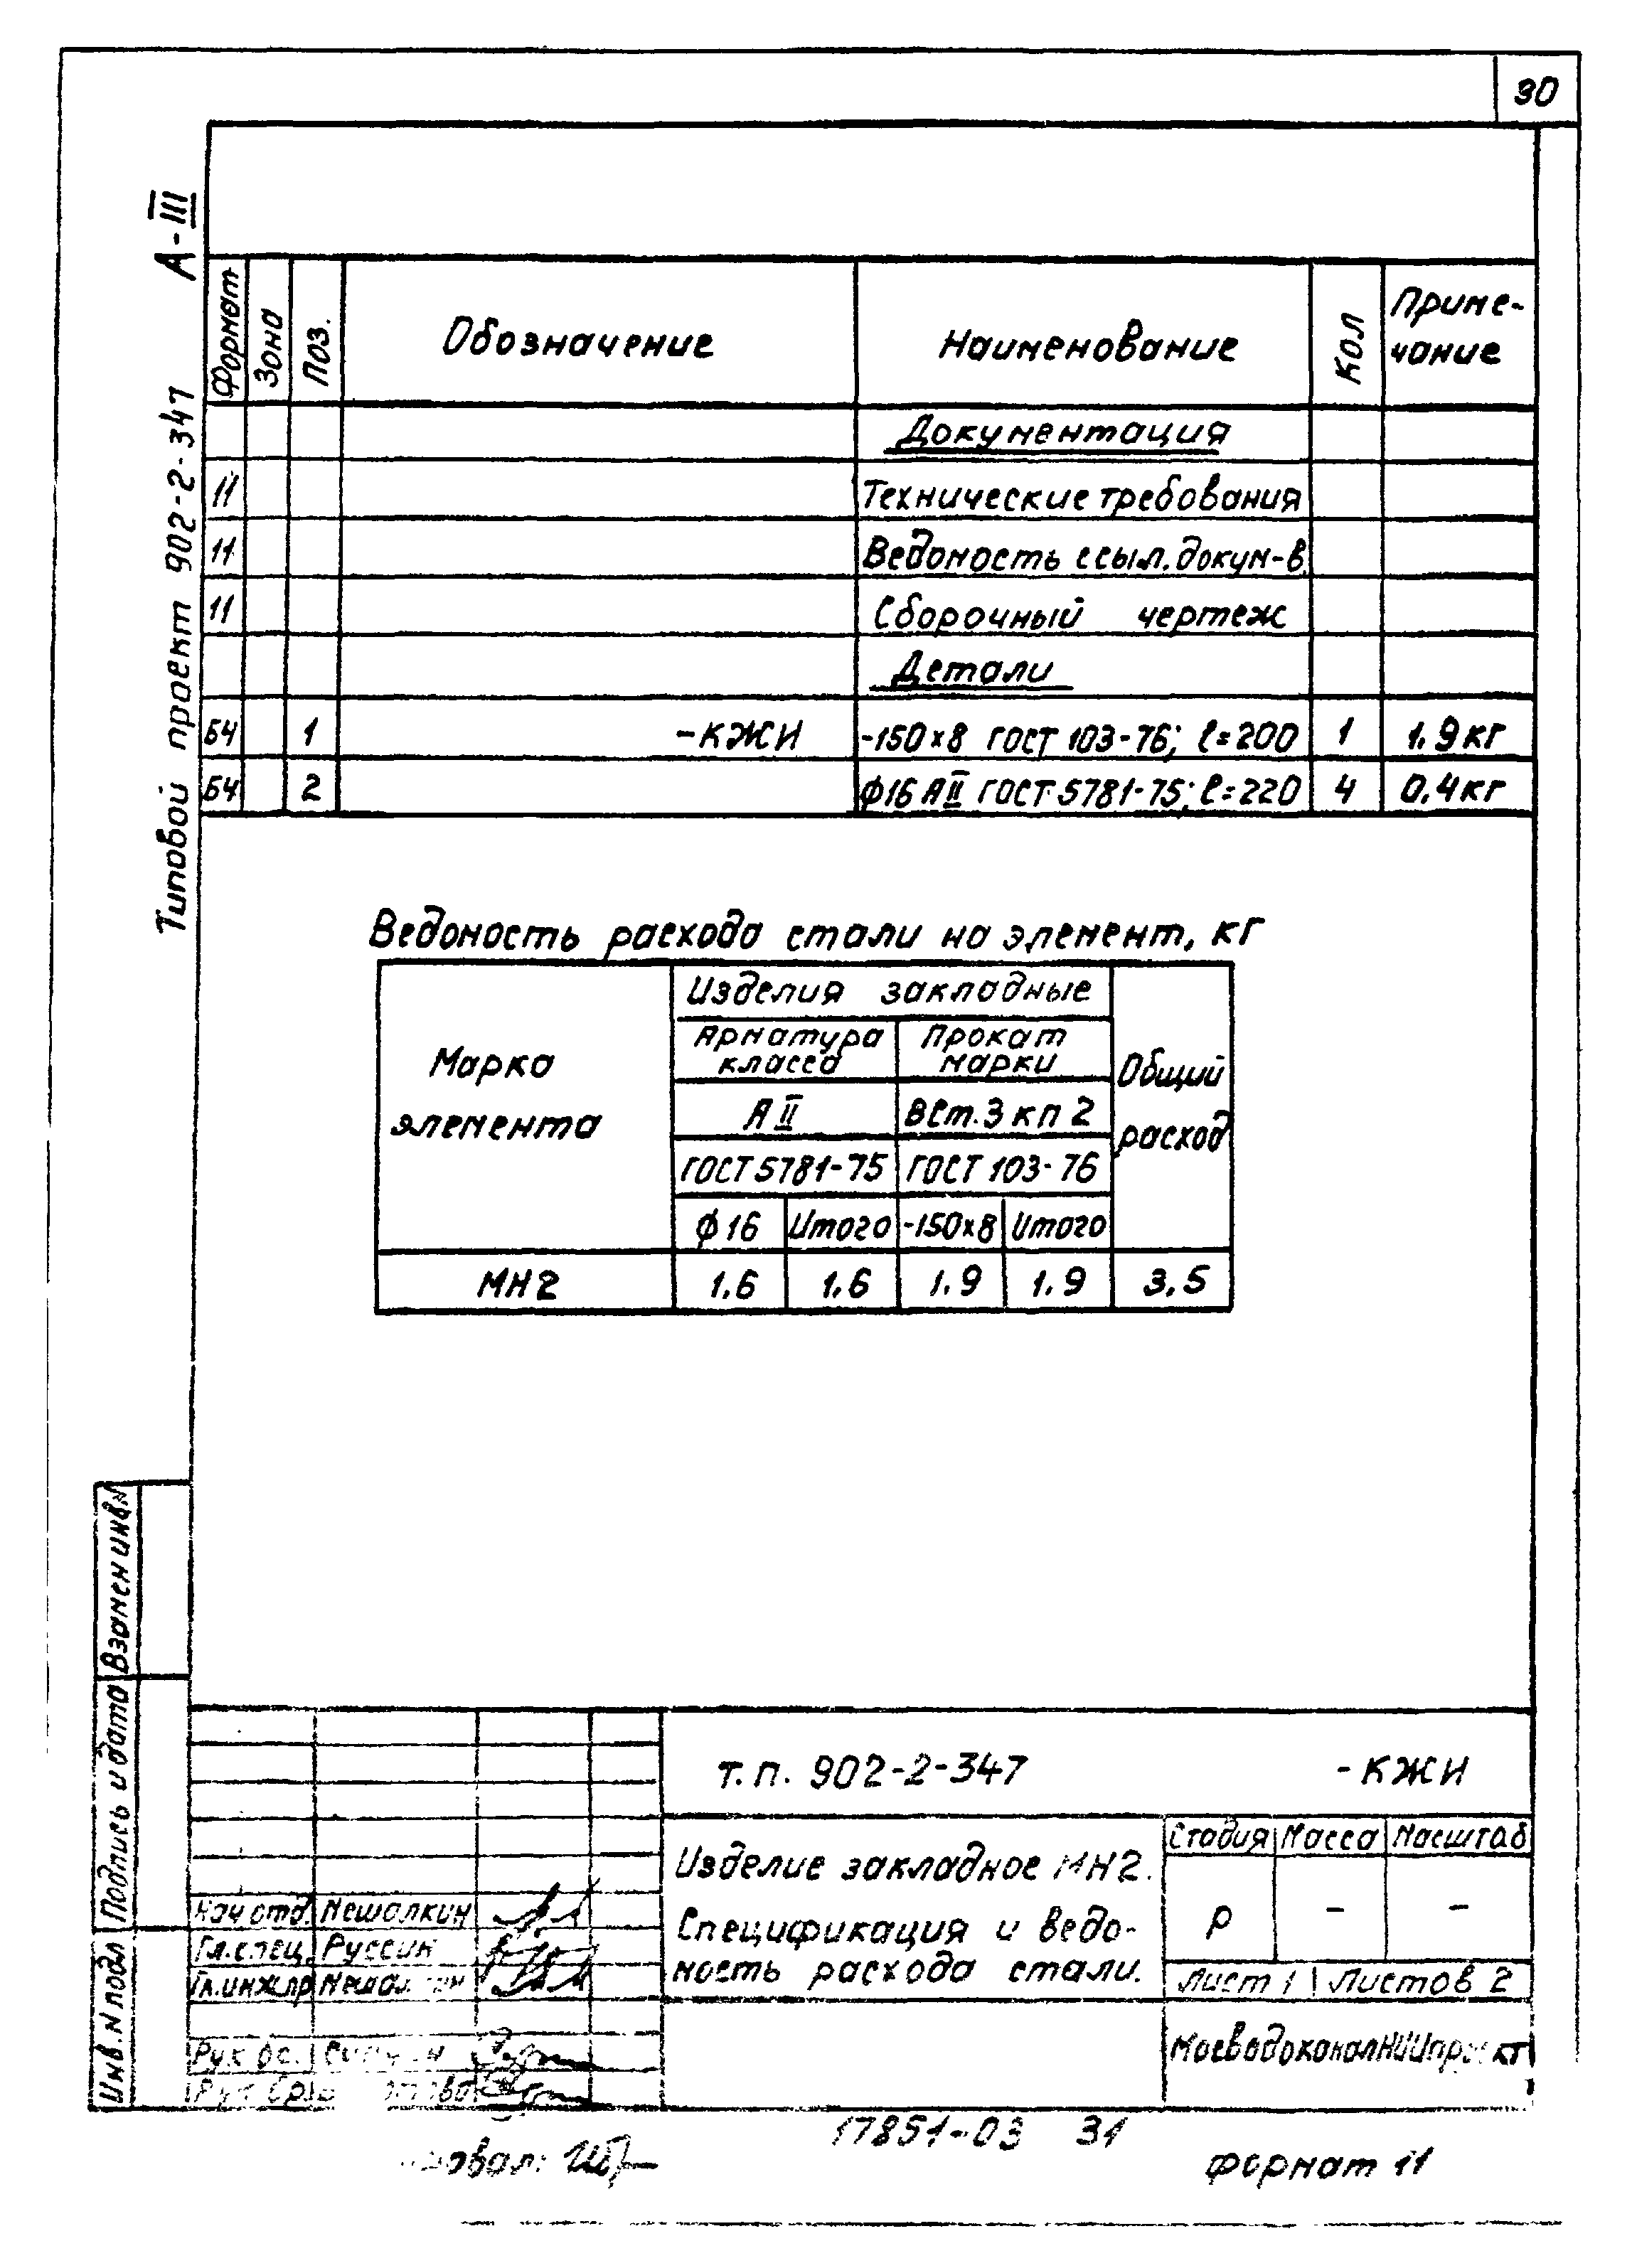 30
Типовой проект 902-2-347 А-III
Формат Зона Поз. Обозначение Наименование Кол Приме-
чание
Документация
11 Технические требования
11 Ведомость ссыл. докум-в
11 Сборочный чертеж
Детали
БЧ 1 -КЖИ -150×8 ГОСТ 103-76; ℓ=200 1 1.9кг
БЧ 2 ф16 АII ГОСТ 5781-75; ℓ=220 4 0.4кг
Ведомость расхода стали на элемент, кг
Марка
элемента
Изделия закладные
Арматура
класса
Прокат
марки
Общий
расход
АII ВСт.3 кп 2
ГОСТ 5781-75 ГОСТ 103-76
ф16 Итого -150×8 Итого
МН2 1.6 1.6 1.9 1.9 3,5
Взамен инв.N
Подпись и дата
Инв. N подл
т.п. 902-2-347 -КЖИ
Изделие закладное МН2.
Спецификация и ведо-
мость расхода стали.
Стадия Масса Масштаб
р - -
Лист 1 Листов 2
МосводоканалНИИпроект
Нач отд. Мешалкин
Гл.спец. Руссин
Гл.инж.пр Мешалкин
17851-03 31
формат 11